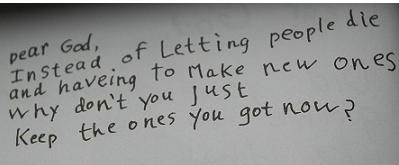 Dear God,
Instead of Letting people die
and haveing to Make new ones
why don't you just
Keep the ones you got now?